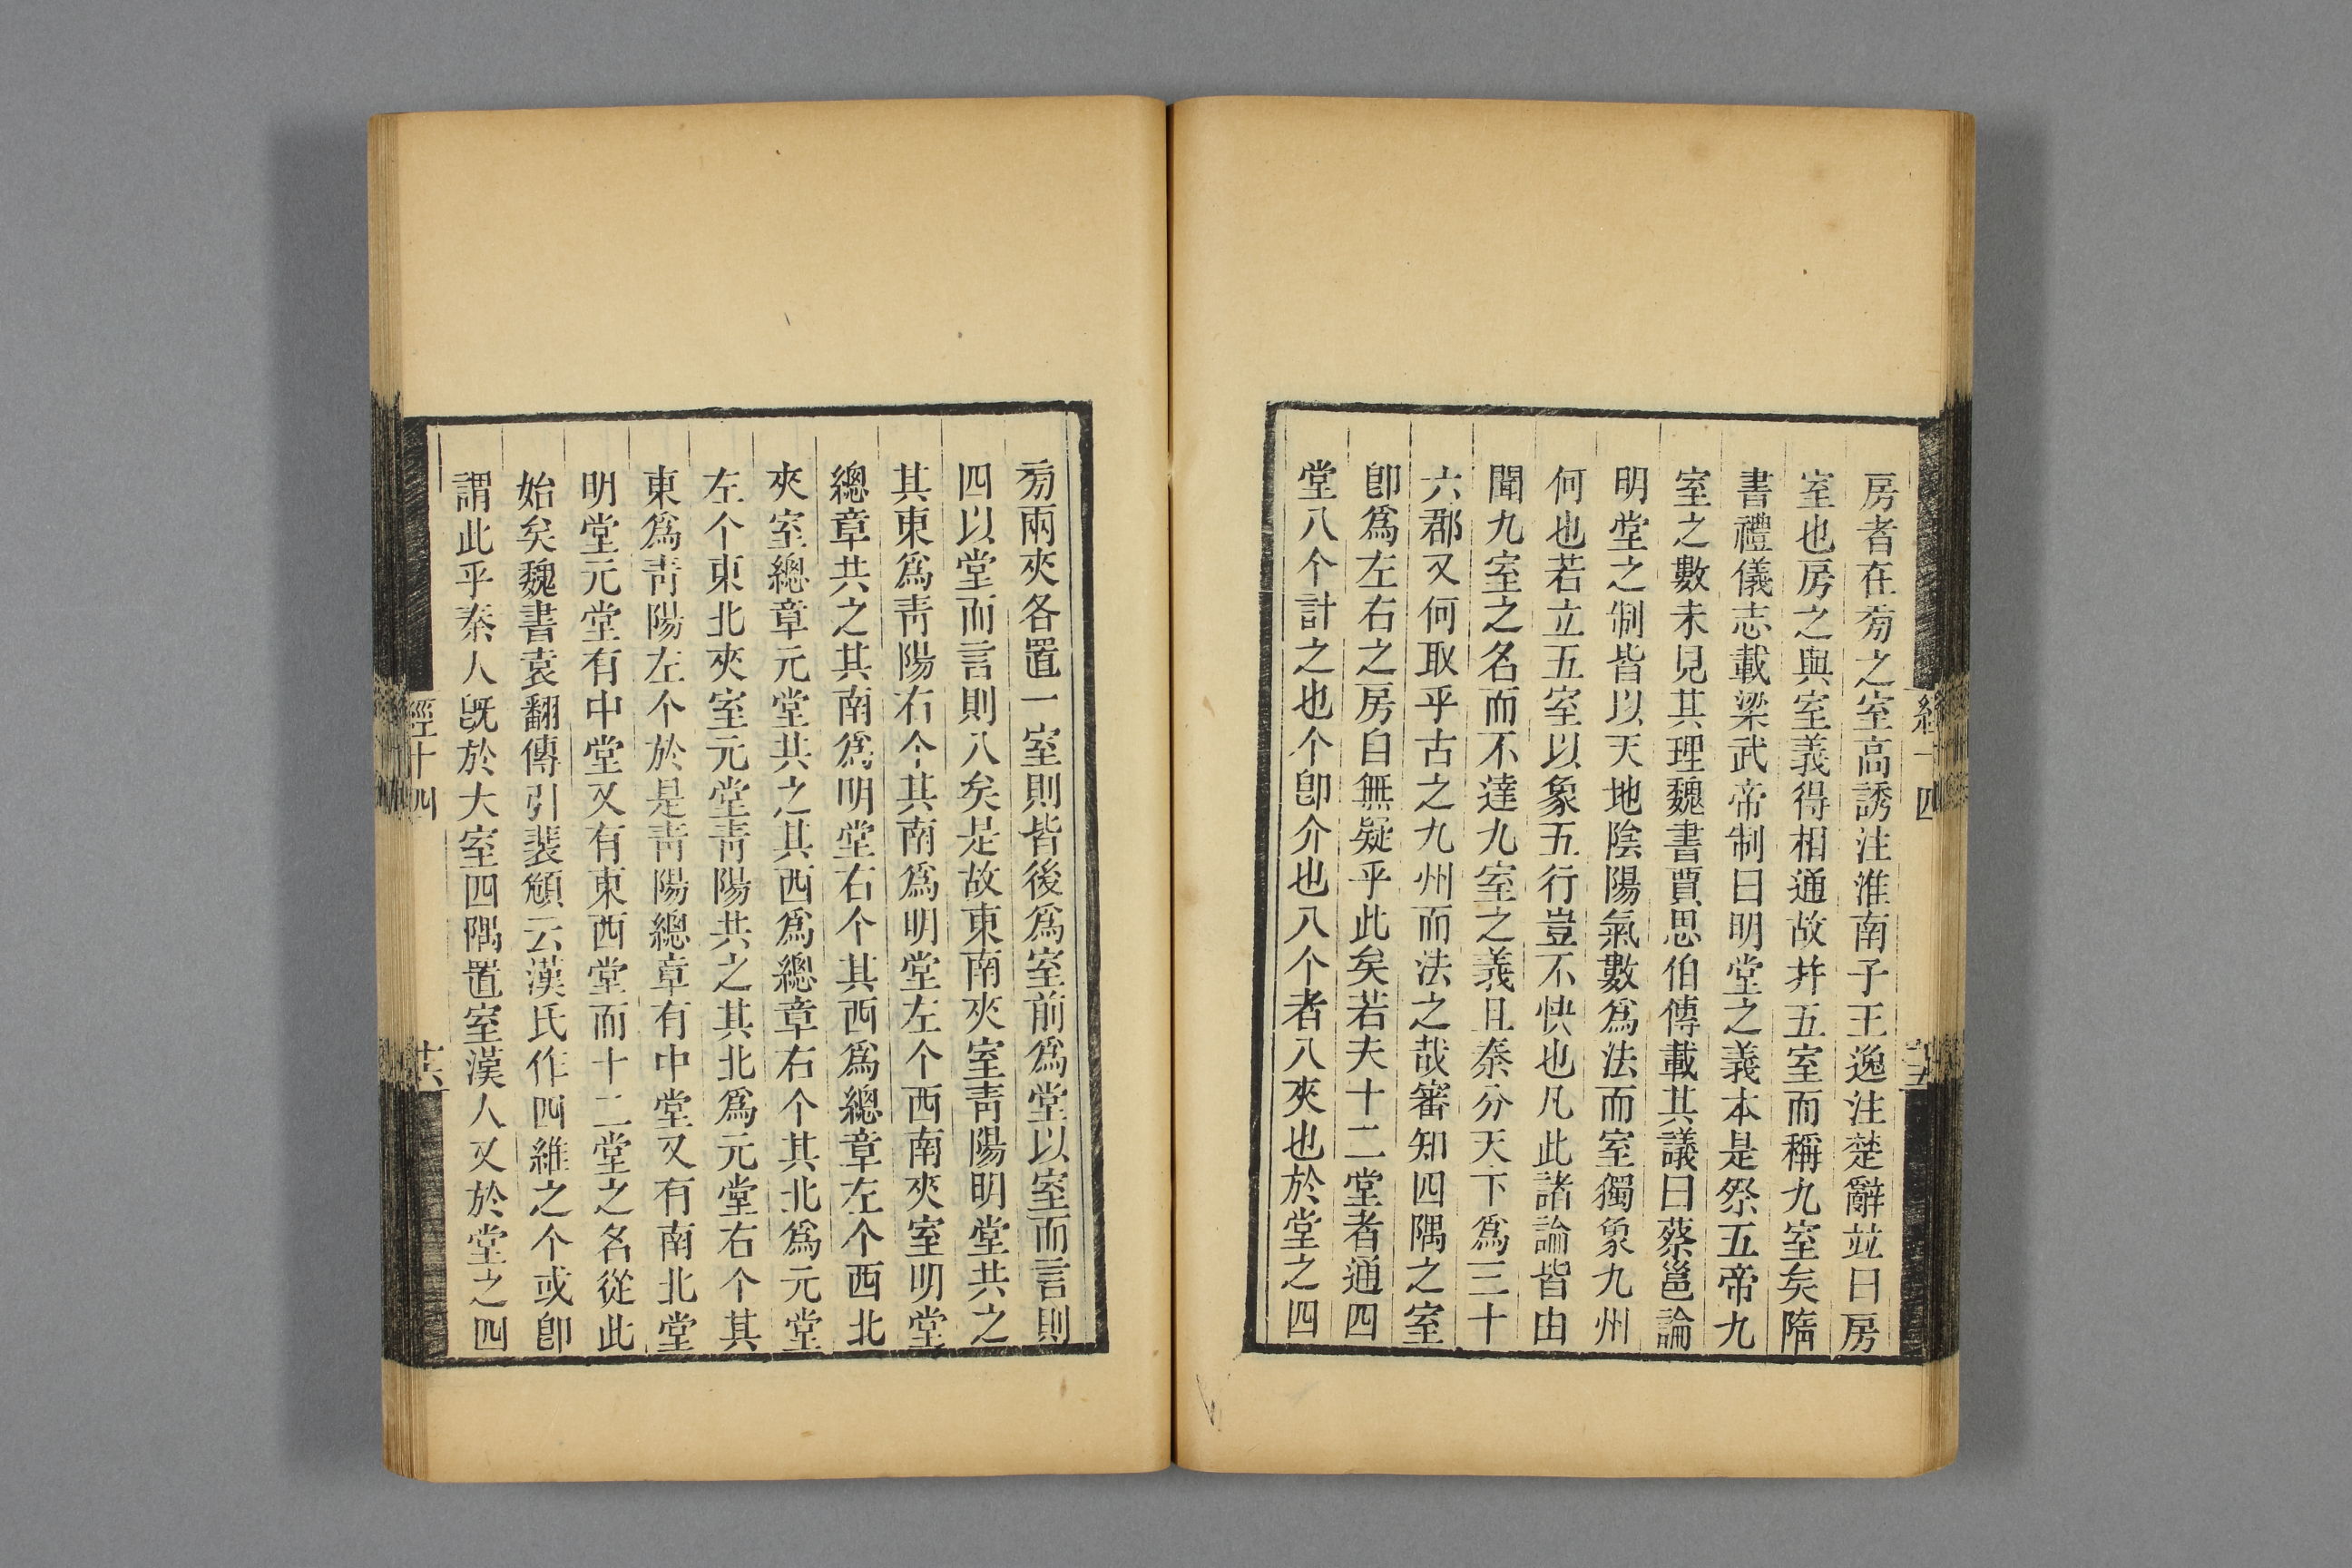 房者在㫄之室高誘注淮南子王逸注楚辭竝曰房
室也房之與室義得相通故幷五室而稱九室矣隋
書禮儀志載梁武帝制曰明堂之義本是祭五帝九
室之數未見其理魏書賈思伯傳載其議曰蔡邕論
明堂之制皆以天地陰陽氣數爲法而室獨象九州
何也若立五室以象五行豈不快也凡此諸論皆由
聞九室之名而不達九室之義且秦分天下爲三十
六郡又何取乎古之九州而法之哉審知四隅之室
卽爲左右之房自無疑乎此矣若夫十二堂者通四
堂八个計之也个卽介也八个者八夾也於堂之四
㫄兩夾各置一室則皆後爲室前爲堂以室而言則
四以堂而言則八矣是故東南夾室靑陽明堂共之
其東爲靑陽右个其南爲明堂左个西南夾室明堂
總章共之其南爲明堂右个其西爲總章左个西北
夾室總章元堂共之其西爲總章右个其北爲元堂
左个東北夾室元堂靑陽共之其北爲元堂右个其
東爲靑陽左个於是靑陽總章有中堂又有南北堂
明堂元堂有中堂又有東西堂而十二堂之名從此
始矣魏書袁翻傳引裴頠云漢氏作四維之个或卽
謂此乎秦人旣於大室四隅置室漢人又於堂之四
經十四
廿六